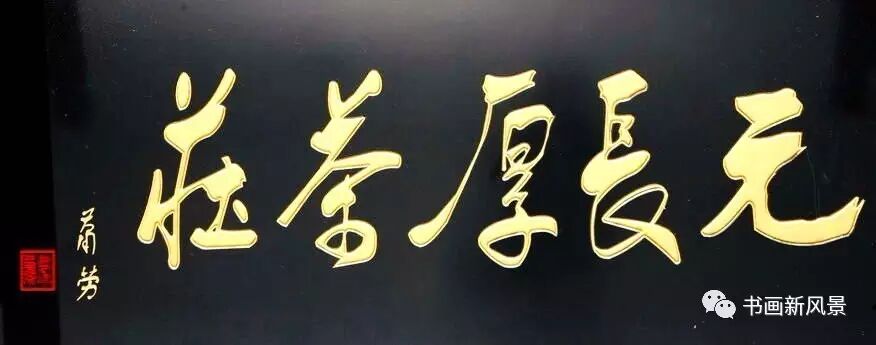 元長厚茶莊
蕭勞
书画新风景